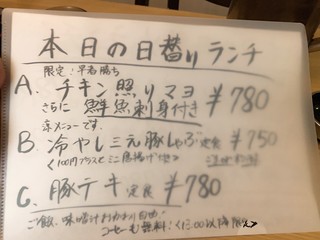 本日の日替りランチ
限定:早者勝ち
A. チキン照りマヨ
さらに 鮮魚刺身付き ¥780
涼メニューです。
B. 冷やし三元豚しゃぶ定食 ¥750
<100円プラスでミニ唐揚げ
C. 豚テキ定食 ¥780
ご飯、味噌汁おかわり自由
コーヒーも無料! <13:00以降限定>